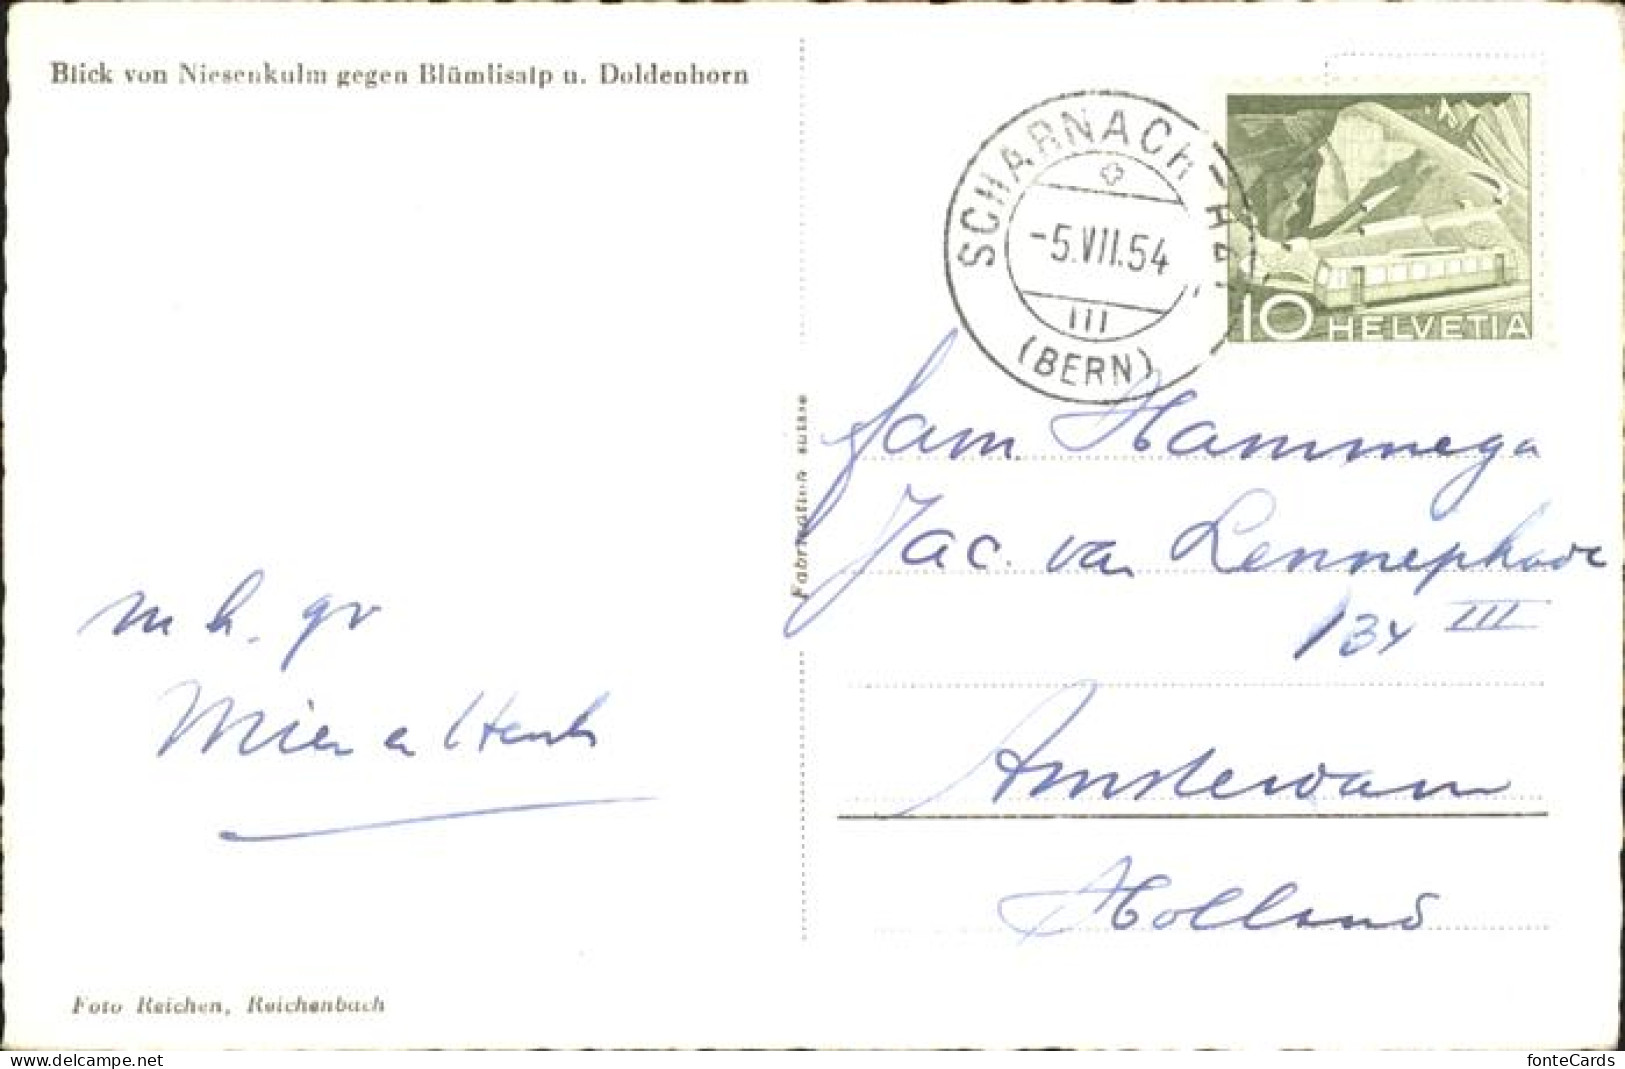 Blick von Niesenkulm gegen Blümlisalp u. Doldenhorn
SCHARNACH-
-5.VII.54
III
(BERN)
10 HELVETIA
fam. Hammega
Jac. van Lennepkade
134 III
Amsterdam
Holland
Fabrication suisse
m h. gr
Mien en Henk
Foto Reichen, Reichenbach
delcampe.net
fonteCards